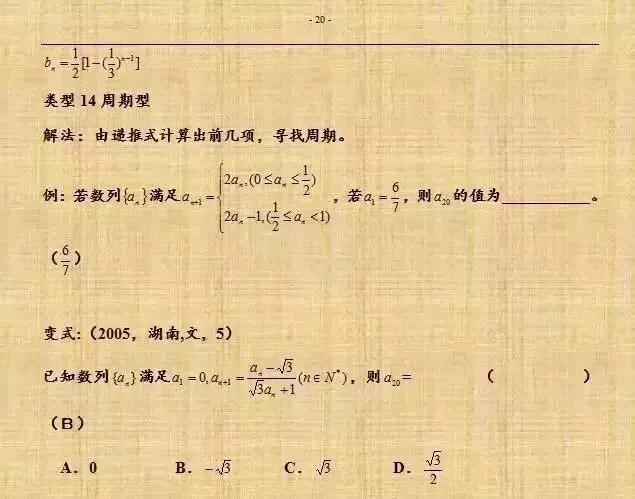 - 20 -
b_n = 1/2[1-(1/3)^{n-1}]
类型 14 周期型
解法：由递推式计算出前几项，寻找周期。
例：若数列{a_n}满足a_{n+1} = { 2a_n,(0≤a_n≤1/2) ; 2a_n-1,(1/2≤a_n<1) ，若a_1 = 6/7，则a_20的值为___________。
（6/7）
变式:（2005，湖南,文，5）
已知数列{a_n}满足a_1 = 0,a_{n+1} = (a_n-√3)/(√3a_n+1)(n∈N*)，则a_20=　　（　　）
（B）
A．0　B．-√3　C．√3　D．√3/2